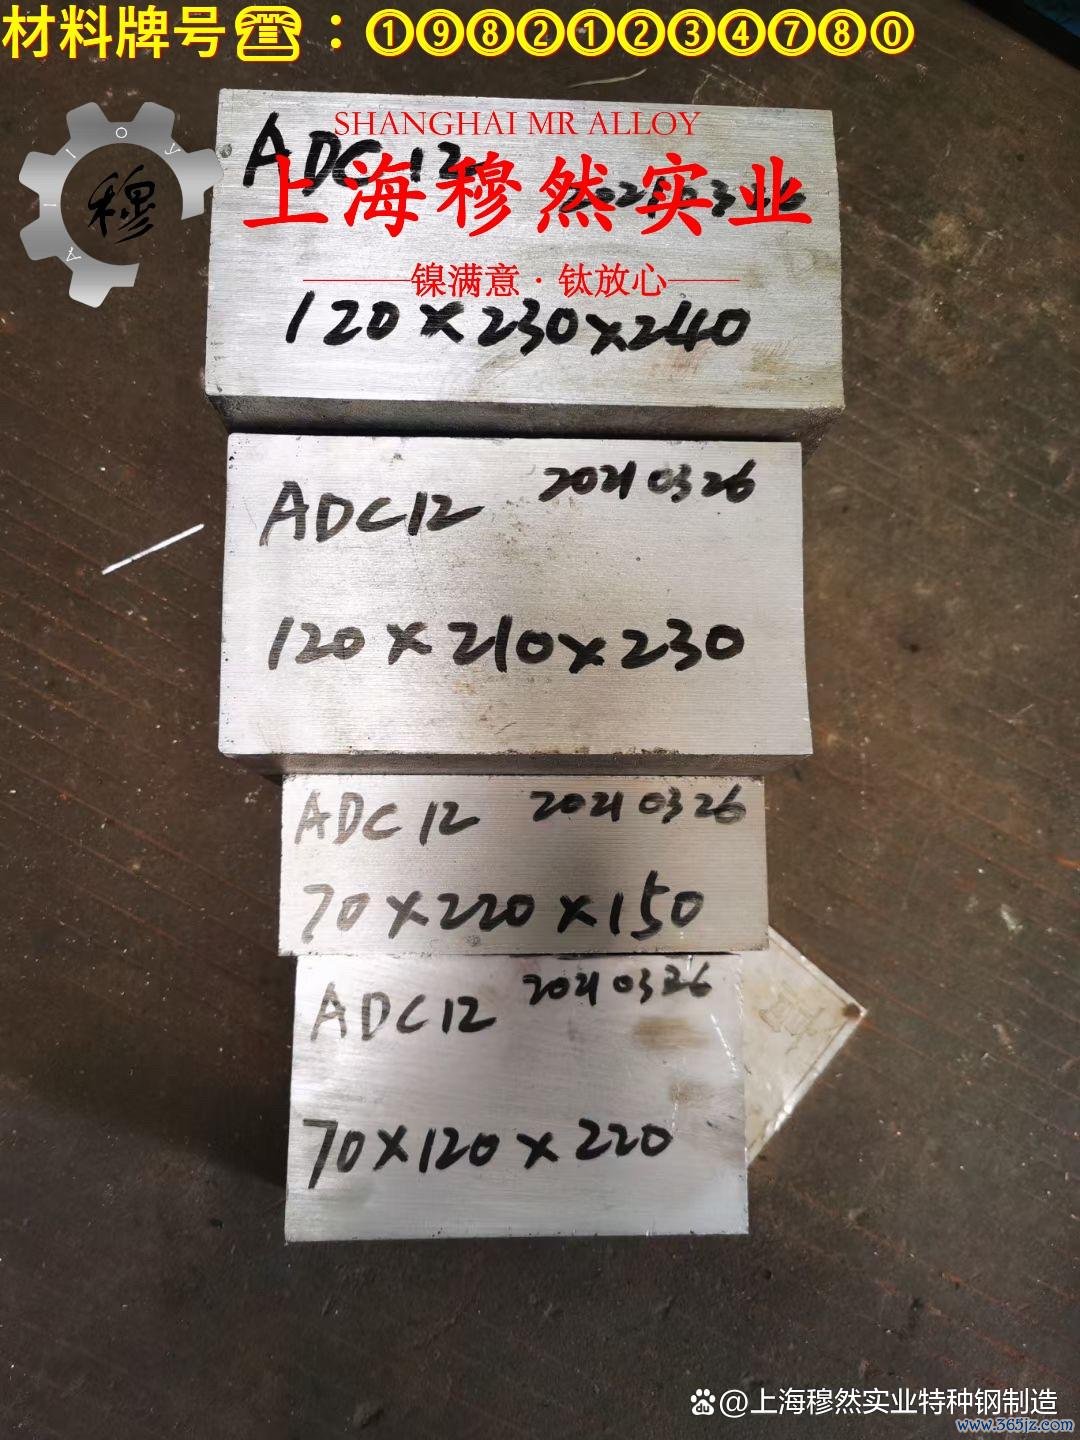 材料牌号☎：①⑨⑧②①②③④⑦⑧⓪
SHANGHAI MR ALLOY
ADC12
上海穆然实业
穆
镍满意·钛放心
120×230×240
ADC12 20210326
120×210×230
ADC12 20210326
70×220×150
ADC12 20210326
70×120×220
@上海穆然实业特种钢制造
www.365jz.com